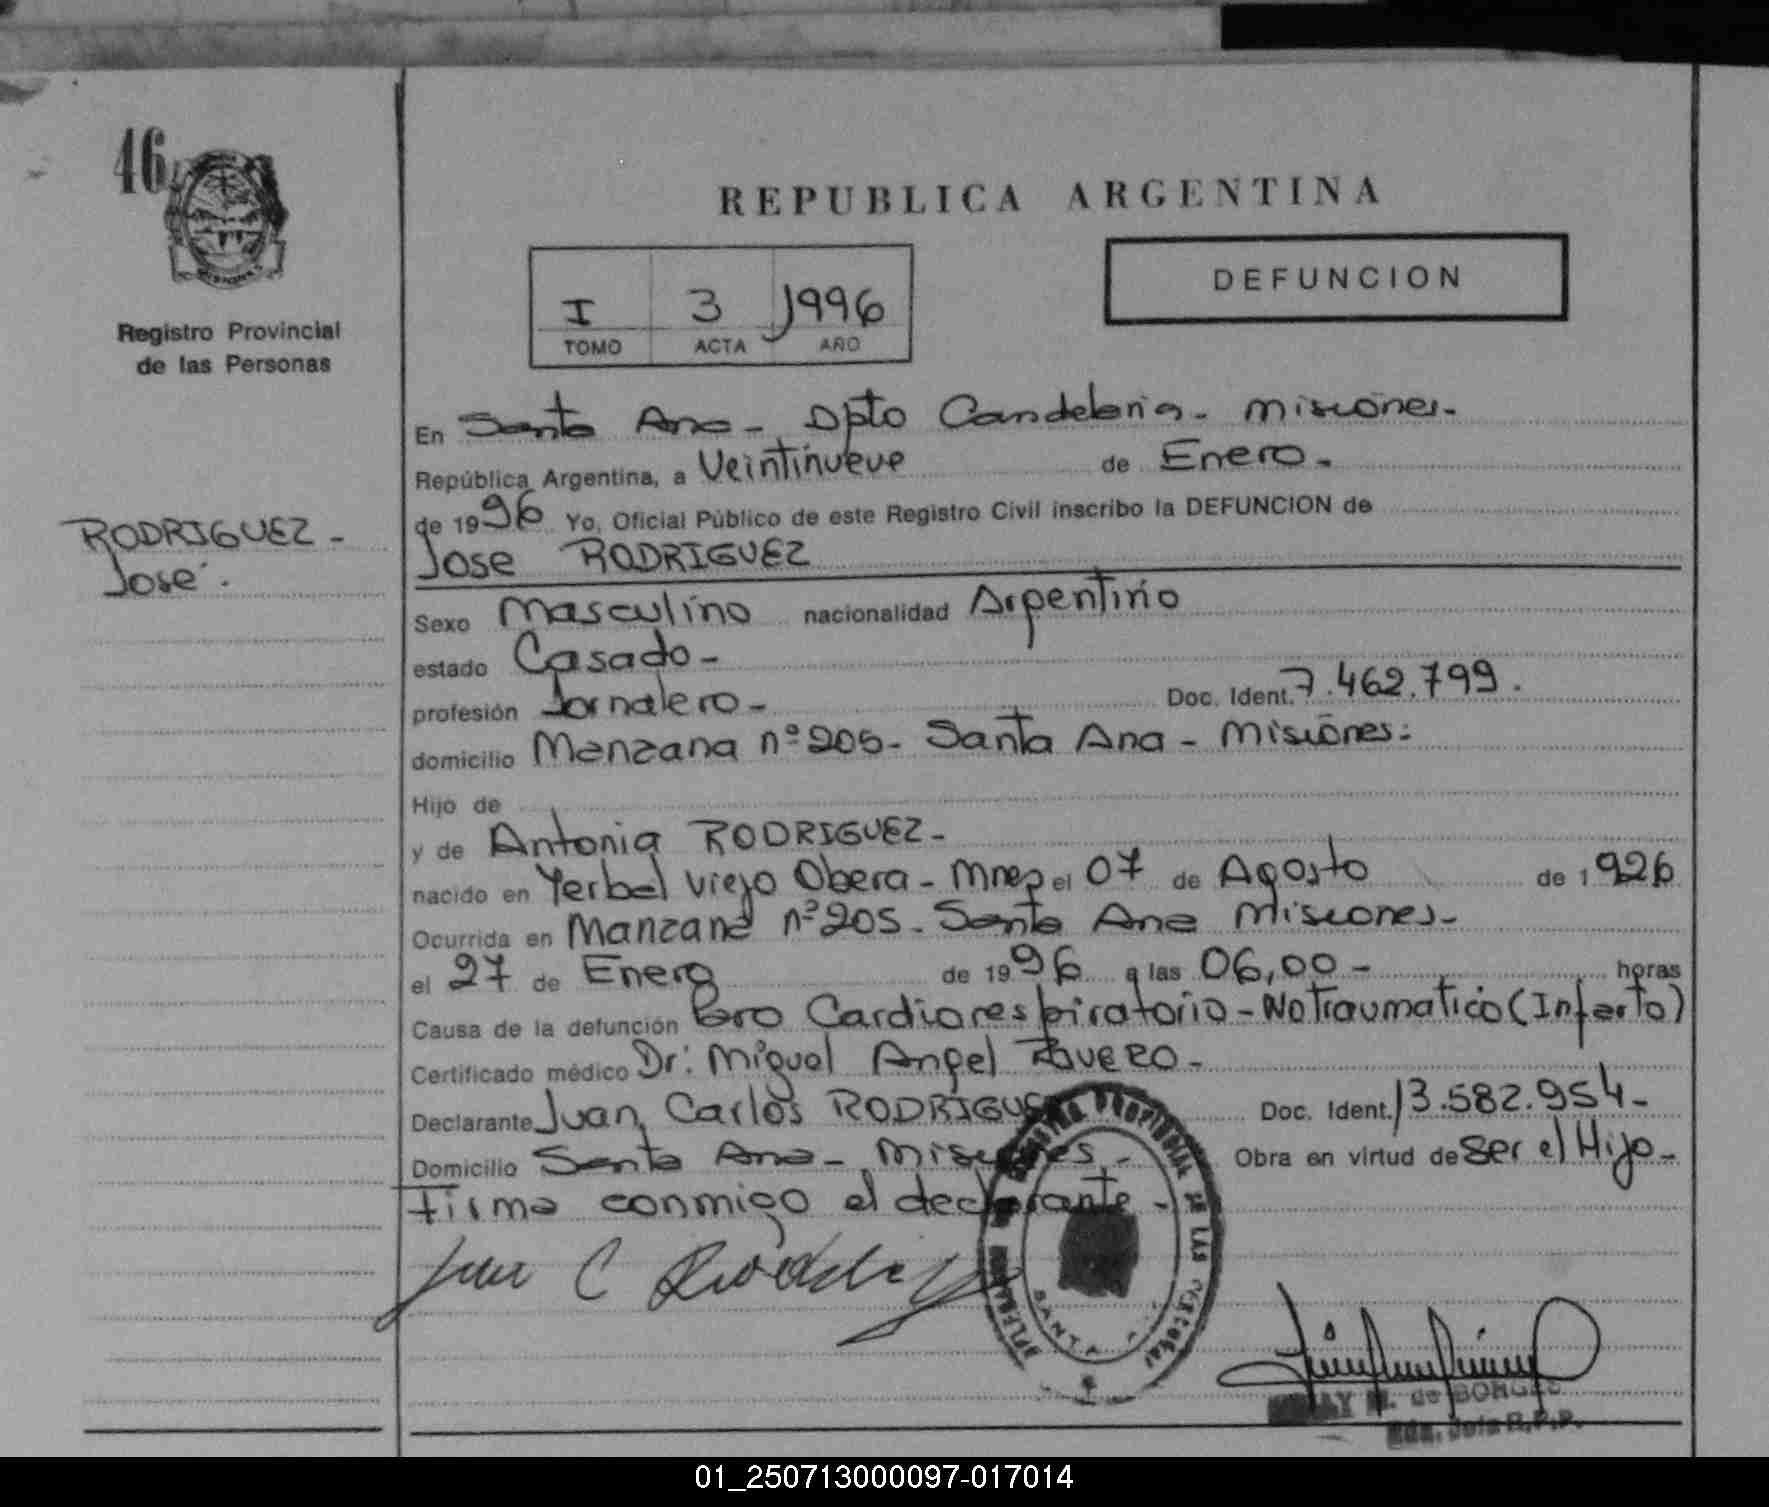 46
MISIONES
Registro Provincial
de las Personas
REPUBLICA ARGENTINA
DEFUNCION
I 3 1996
TOMO ACTA AÑO
RODRIGUEZ -
José.
En Santa Ana - Dpto Candelaria - Misiones.
República Argentina, a Veintinueve de Enero.
de 1996 Yo, Oficial Público de este Registro Civil inscribo la DEFUNCION de
Jose RODRIGUEZ
Sexo Masculino nacionalidad Argentino
estado Casado -
profesión Jornalero - Doc. Ident. 7.462.799.
domicilio Manzana nº 205 - Santa Ana - Misiones.
Hijo de
y de Antonia RODRIGUEZ -
nacido en Yerbal Viejo Obera - Mnes el 07 de Agosto de 1926
Ocurrida en Manzana nº 205 - Santa Ana Misiones -
el 27 de Enero de 1996 a las 06,00 - horas
Causa de la defunción Paro Cardiorespiratorio - No Traumatico (Infarto)
Certificado médico Dr. Miguel Angel
Declarante Juan Carlos RODRIGUEZ Doc. Ident. 13.582.954 -
Domicilio Santa Ana - Misiones - Obra en virtud de ser el Hijo -
Firma conmigo el declarante -
Juan C Rodriguez
REGISTRO PROVINCIAL DE LAS PERSONAS
SANTA
M. de BORGES
R.P.P.
01_250713000097-017014